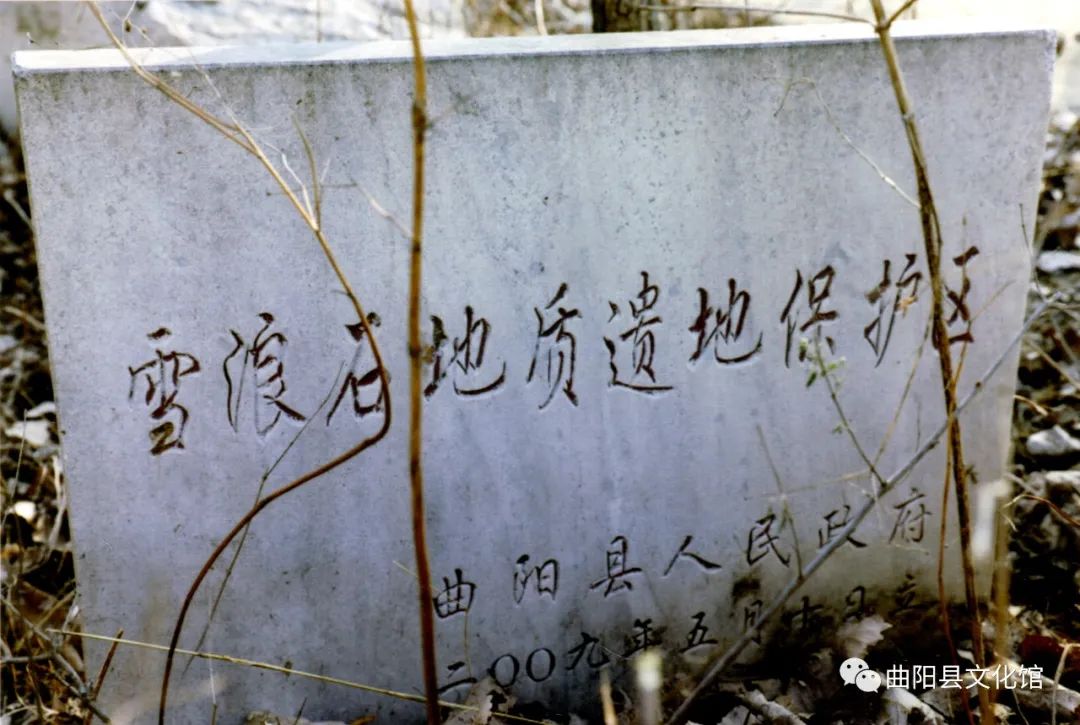 雪浪石地质遗地保护区
曲阳县人民政府
二〇〇九年五月十日立
曲阳县文化馆